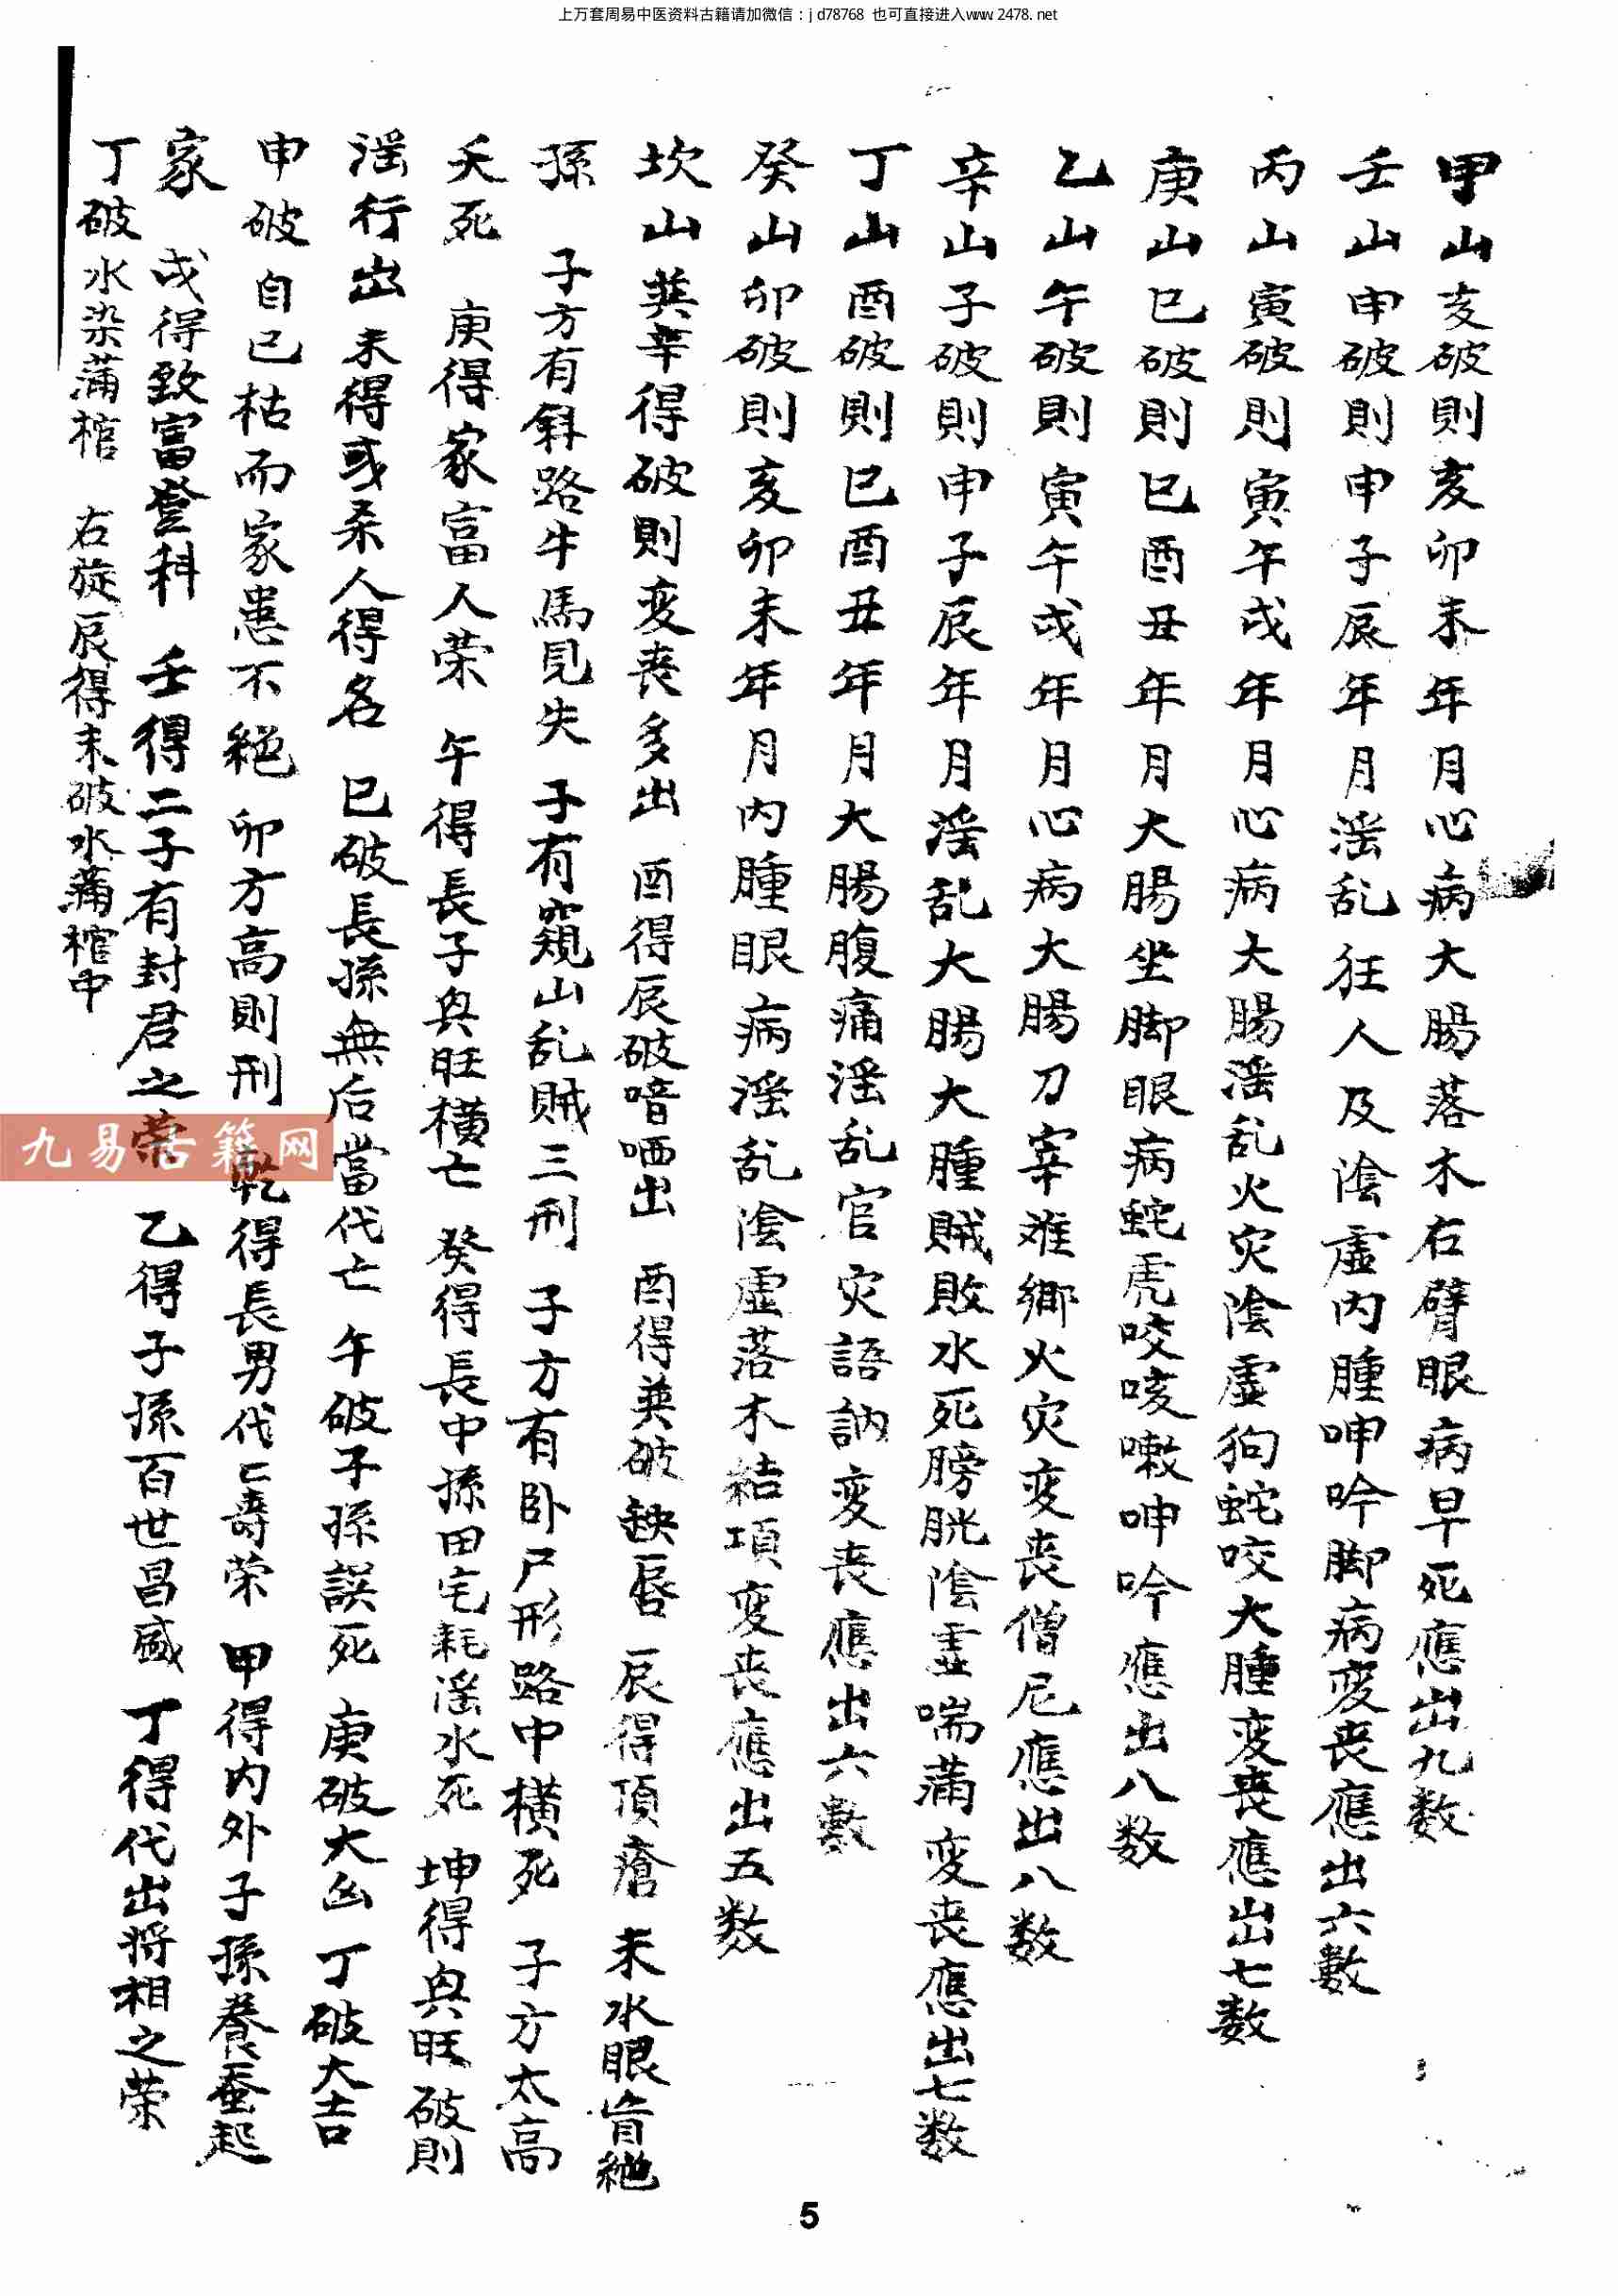 上万套周易中医资料古籍请加微信：jd78768 也可直接进入www.2478.net
甲山亥破則亥卯未年月心病大腸落木右臂眼病早死應出九数
壬山申破則申子辰年月滛乱狂人及陰虛內腫呻吟脚病变丧應出六數
丙山寅破則寅午戌年月心病大腸滛乱火灾陰虛狗蛇咬大腫变丧應出七数
庚山巳破則巳酉丑年月大腸坐脚眼病蛇虎咬咳嗽呻吟應出八数
乙山午破則寅午戌年月心病大腸刀宰难鄉火灾变丧僧尼應出八数
辛山子破則申子辰年月滛乱大腸大腫賊敗水死膀胱陰虛喘滿变丧應出七数
丁山酉破則巳酉丑年月大腸腹痛滛乱官灾語訥变丧應出六數
癸山卯破則亥卯未年月内腫眼病滛乱陰虛落木結項变丧應出五数
坎山 巽辛得破則变丧多出 酉得辰破喑哂出 酉得巽破缺唇 辰得頂瘡 未水眼盲絶
孫 子方有斜路牛馬見失 子有窺山乱賊三刑 子方有卧尸形路中横死 子方太高
夭死 庚得家富人荣 午得長子與旺横亡 癸得長中孫田宅耗滛水死 坤得與旺破則
滛行出 未得或杀人得名 巳破長孫無后當代亡 午破子孫誤死 庚破大凶 丁破大吉
申破自己枯而家患不絕 卯方高則刑 乾得長男代亡壽荣 甲得内外子孫養蚕起
家 戌得致富登科 壬得二子有封君之荣 乙得子孫百世昌盛 丁得代出將相之荣
丁破水染蒲棺 右旋辰得未破水蒲棺中
九易古籍网
5